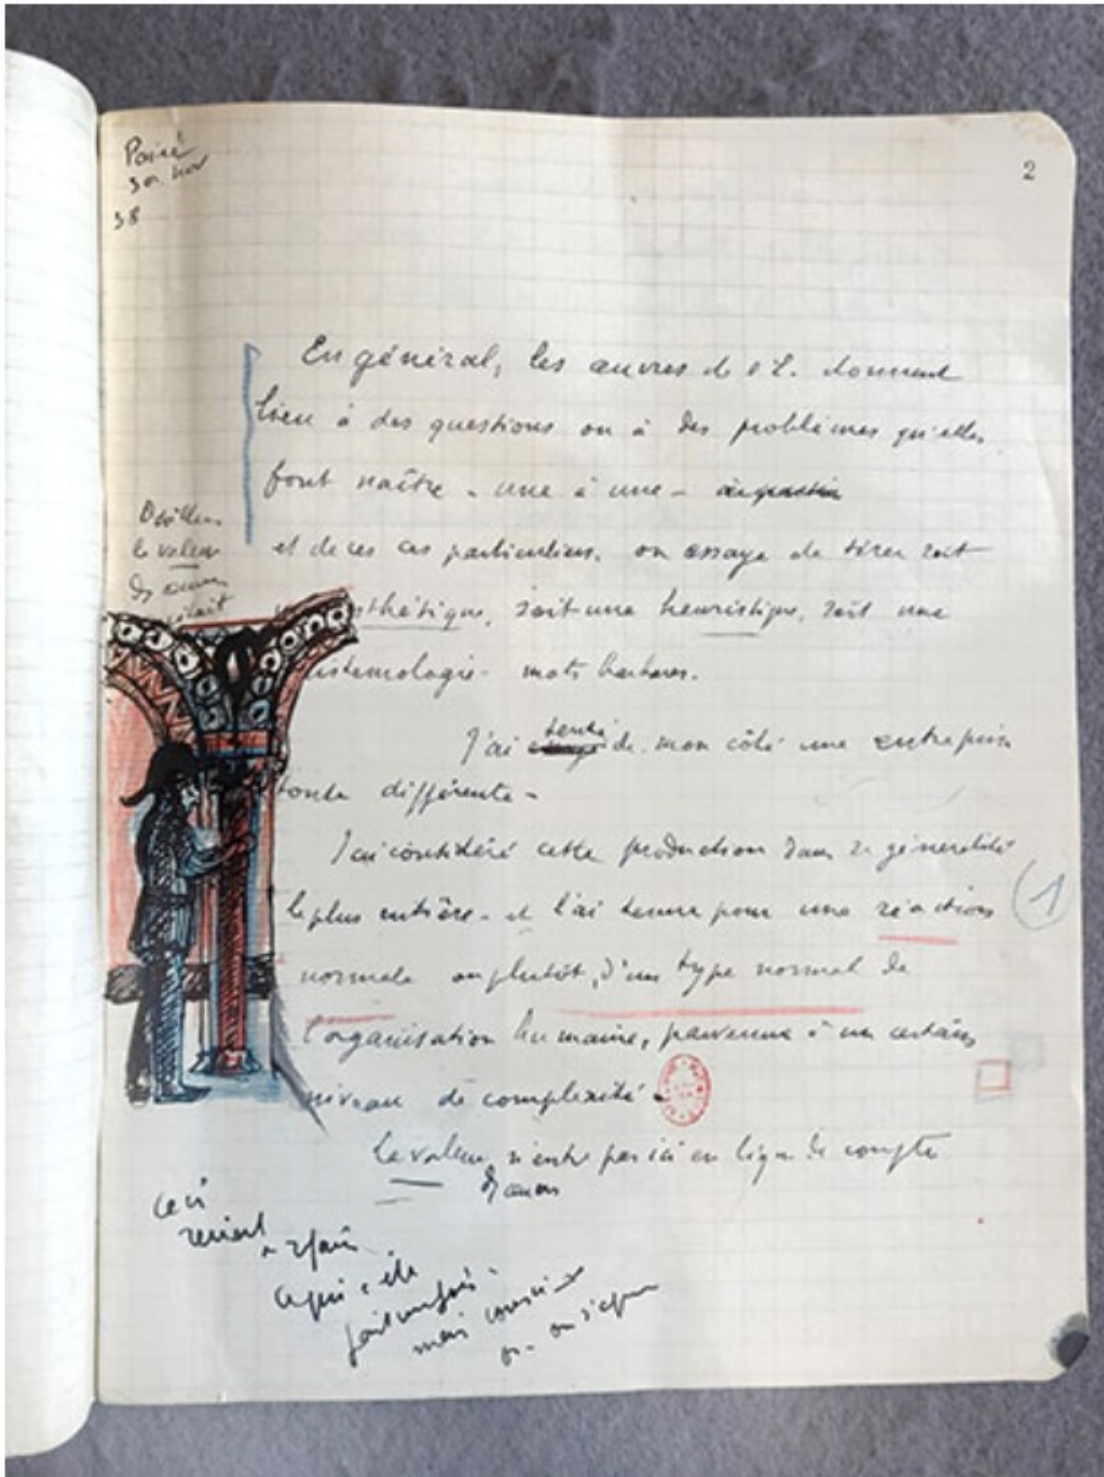 2
38
En général, les œuvres de l'E. donnent
lieu à des questions ou à des problèmes qu'elles
font naître - une à une -
et de ces cas particuliers, on essaye de tirer soit
esthétique, soit une heuristique, soit une
istémologie - mots barbares.
J'ai tenté de mon côté une entreprise
toute différente -
J'ai considéré cette production dans sa généralité
la plus entière - et l'ai tenue pour une réaction
normale ou plutôt, d'un type normal de
l'organisation humaine, parvenue à un certain
niveau de complexité -
(1)
La valeur n'entre pas ici en ligne de compte
la valeur
Ceci
revient
à
ce qui a été
fait
mais
on